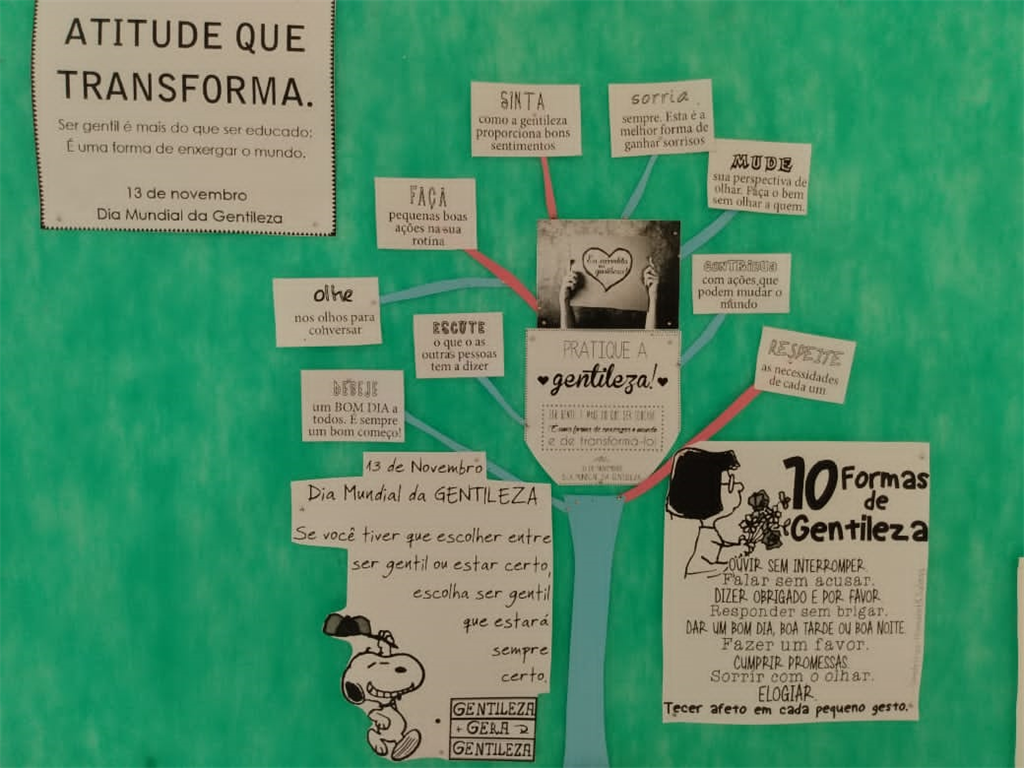 ATITUDE QUE
TRANSFORMA.
Ser gentil é mais do que ser educado;
É uma forma de enxergar o mundo.
13 de novembro
Dia Mundial da Gentileza
SINTA
como a gentileza
proporciona bons
sentimentos
sorria
sempre. Esta é a
melhor forma de
ganhar sorrisos
MUDE
sua perspectiva de
olhar. Faça o bem
sem olhar a quem.
FAÇA
pequenas boas
ações na sua
rotina
CONTRIBUA
com ações que
podem mudar o
mundo
olhe
nos olhos para
conversar
ESCUTE
o que o as
outras pessoas
tem a dizer
RESPEITE
as necessidades
de cada um
DESEJE
um BOM DIA a
todos. É sempre
um bom começo!
Eu acredito
na
gentileza!
PRATIQUE A
gentileza!
SER GENTIL É MAIS DO QUE SER EDUCADO
É uma forma de enxergar o mundo
e de transformá-lo!
13 DE NOVEMBRO
DIA MUNDIAL DA GENTILEZA
13 de Novembro
Dia Mundial da GENTILEZA
Se você tiver que escolher entre
ser gentil ou estar certo,
escolha ser gentil
que estará
sempre
certo.
GENTILEZA
GERA
GENTILEZA
10 Formas
de
Gentileza
OUVIR SEM INTERROMPER.
Falar sem acusar.
DIZER OBRIGADO E POR FAVOR.
Responder sem brigar.
DAR UM BOM DIA, BOA TARDE OU BOA NOITE.
Fazer um favor.
CUMPRIR PROMESSAS.
Sorrir com o olhar.
ELOGIAR.
Tecer afeto em cada pequeno gesto.